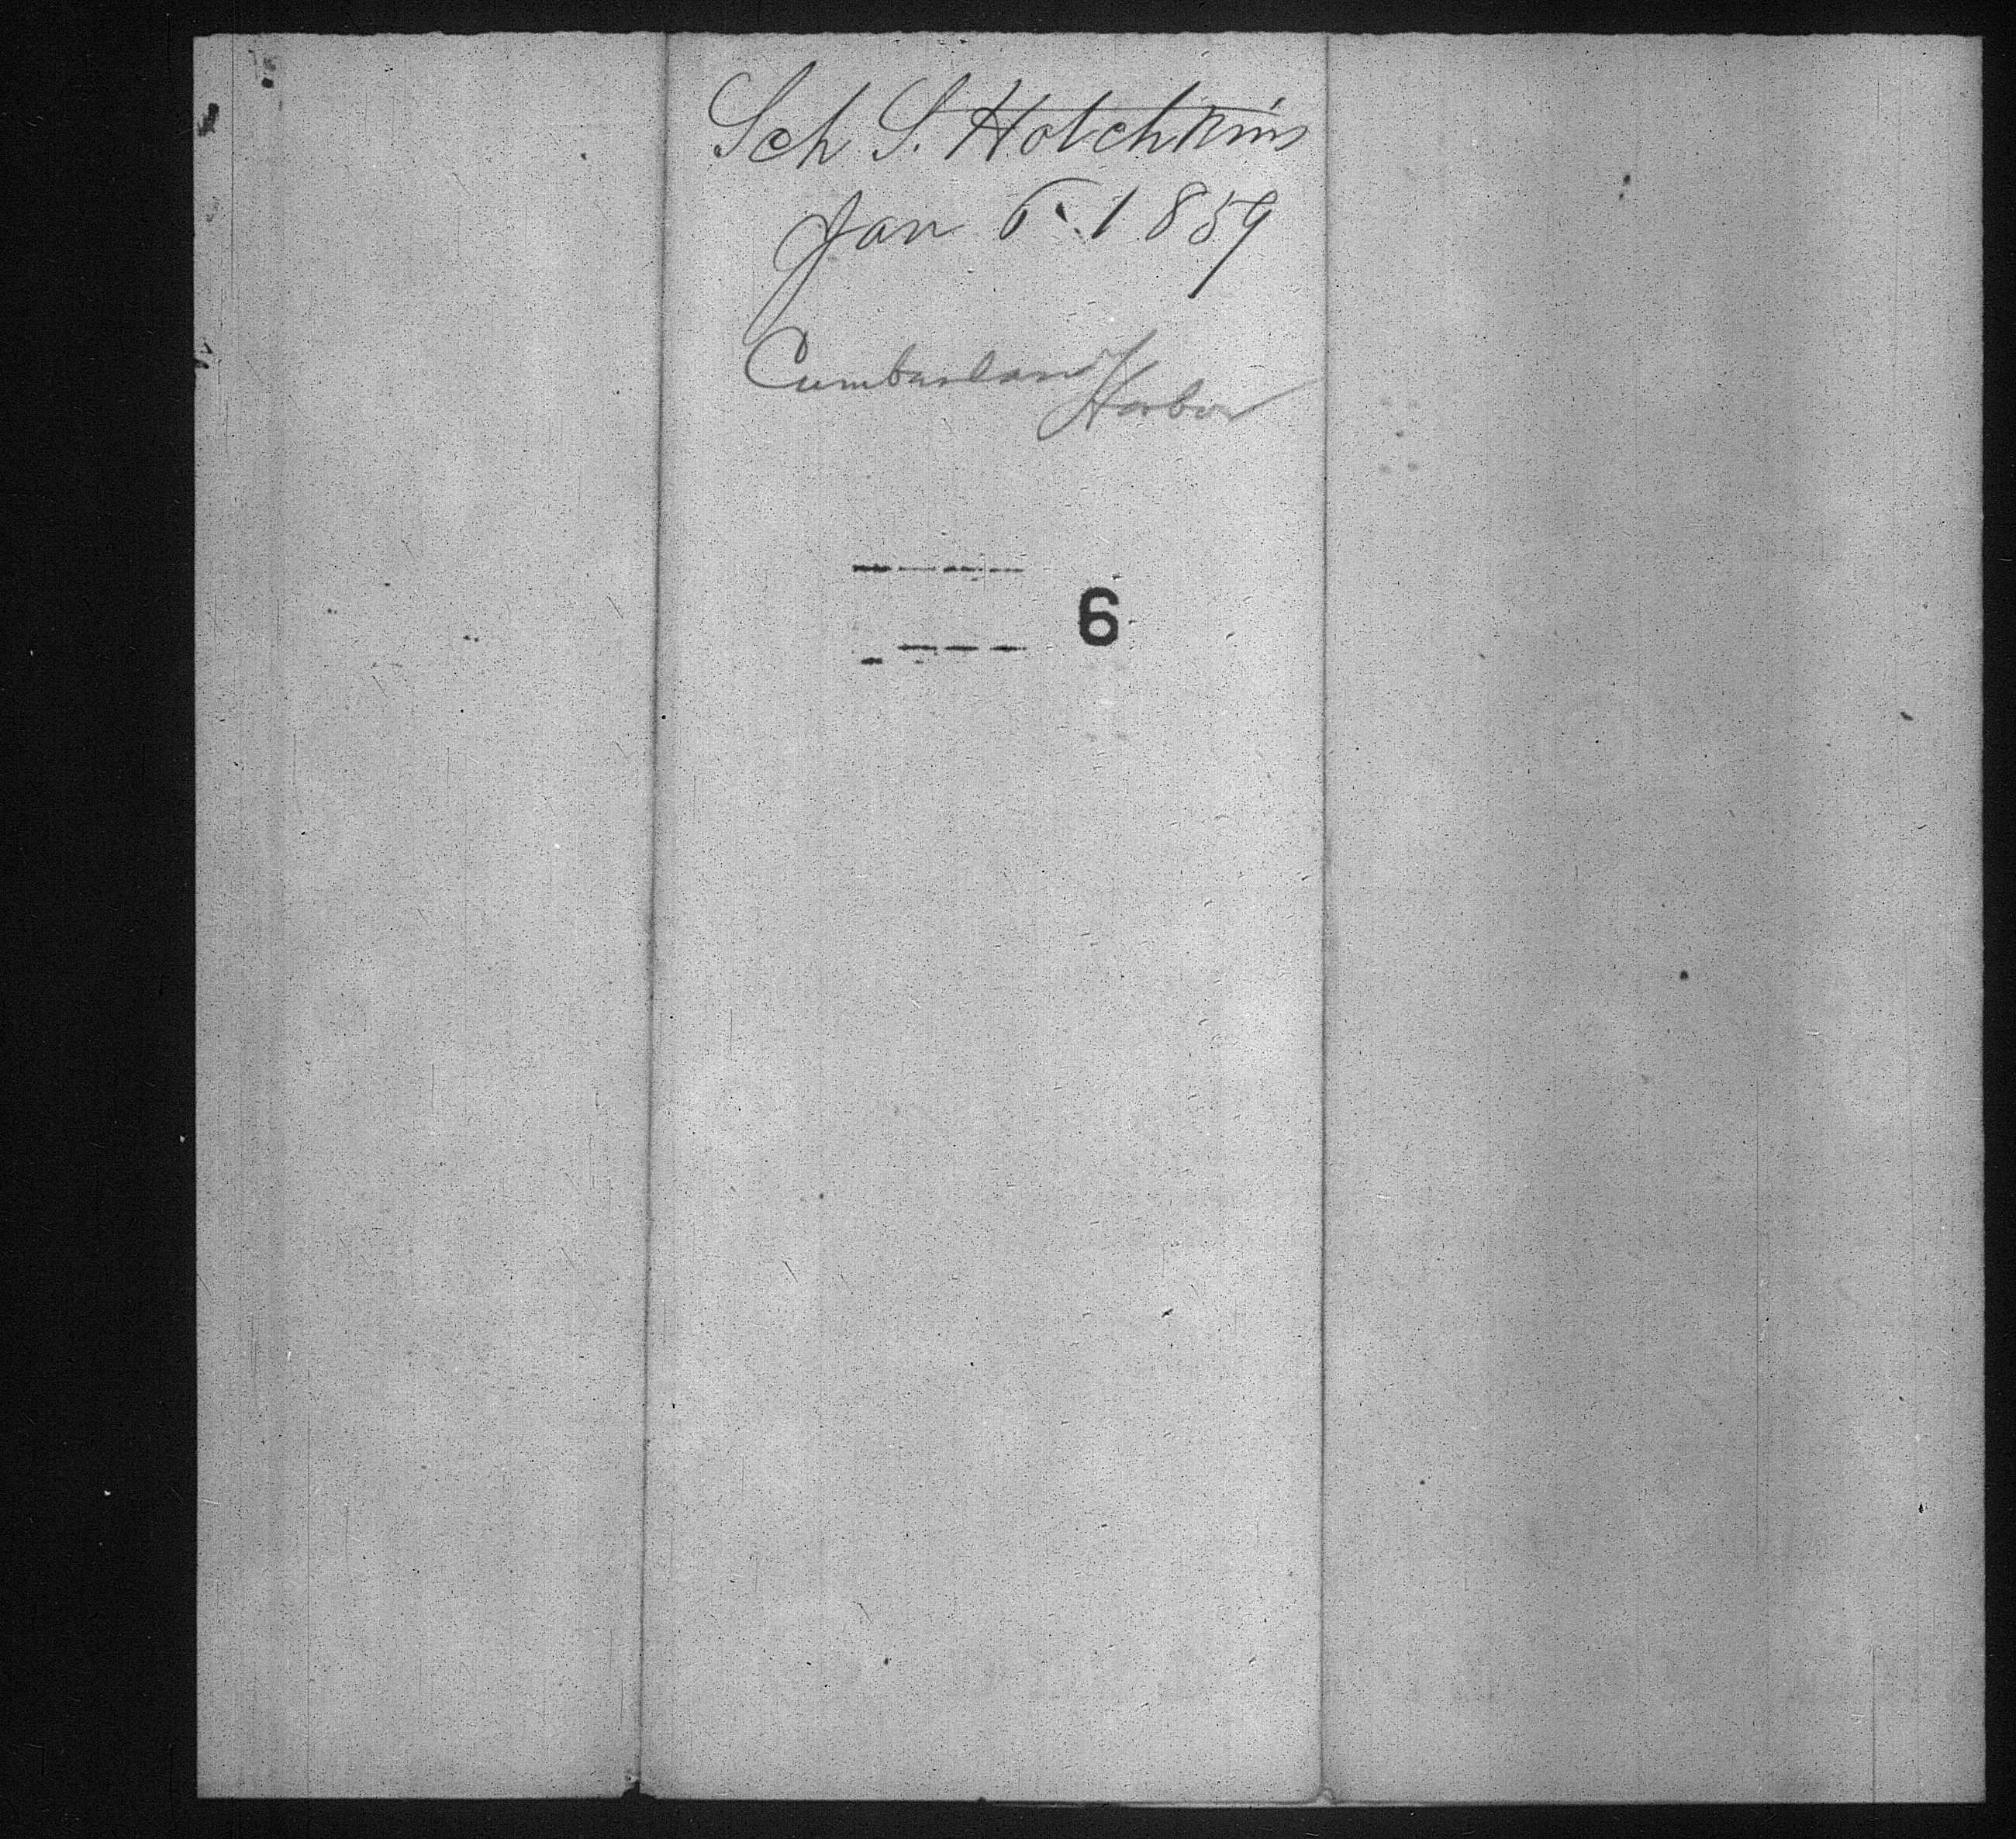 Sch S. Hotchkins
Jan 6. 1859
Cumberland
Harbor
6